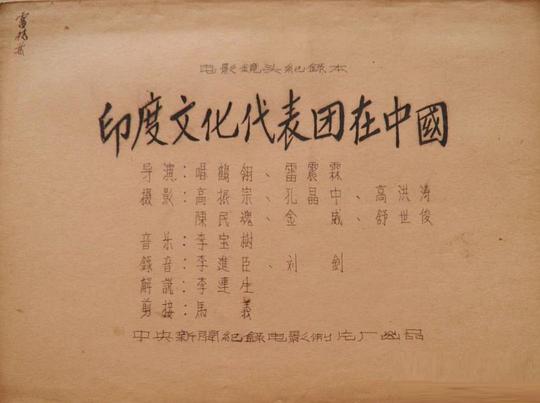 电影鏡头紀錄本
印度文化代表团在中國
导演：唱鶴翎、雷震霖
摄影：高振宗、孔晶中、高洪涛
陳民魂、金威、舒世俊
音乐：李宝樹
錄音：李進臣、刘剑
解說：李連生
剪接：馬義
中央新聞紀錄电影制片厂出品